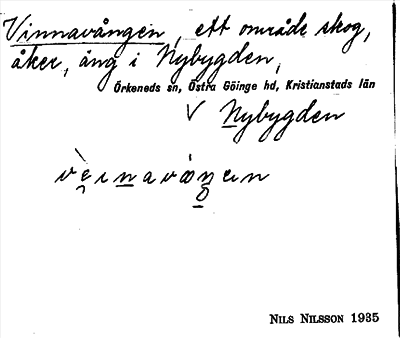 Vinnavången, ett område skog,
åker, äng i Nybygden,
Örkeneds sn, Östra Göinge hd, Kristianstads län
V Nybygden
NILS NILSSON 1935